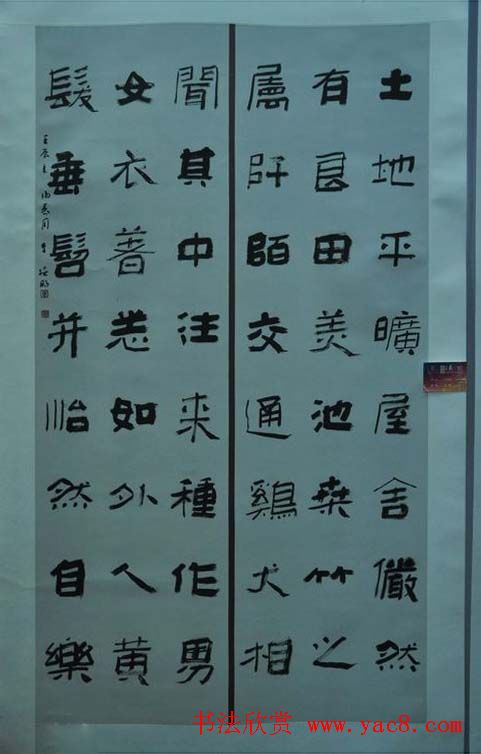 土地平曠屋舍儼然
有良田美池桑竹之
屬阡陌交通鷄犬相
聞其中往来種作男
女衣著悉如外人黄
髮垂髫并怡然自樂
书法欣赏 www.yac8.com